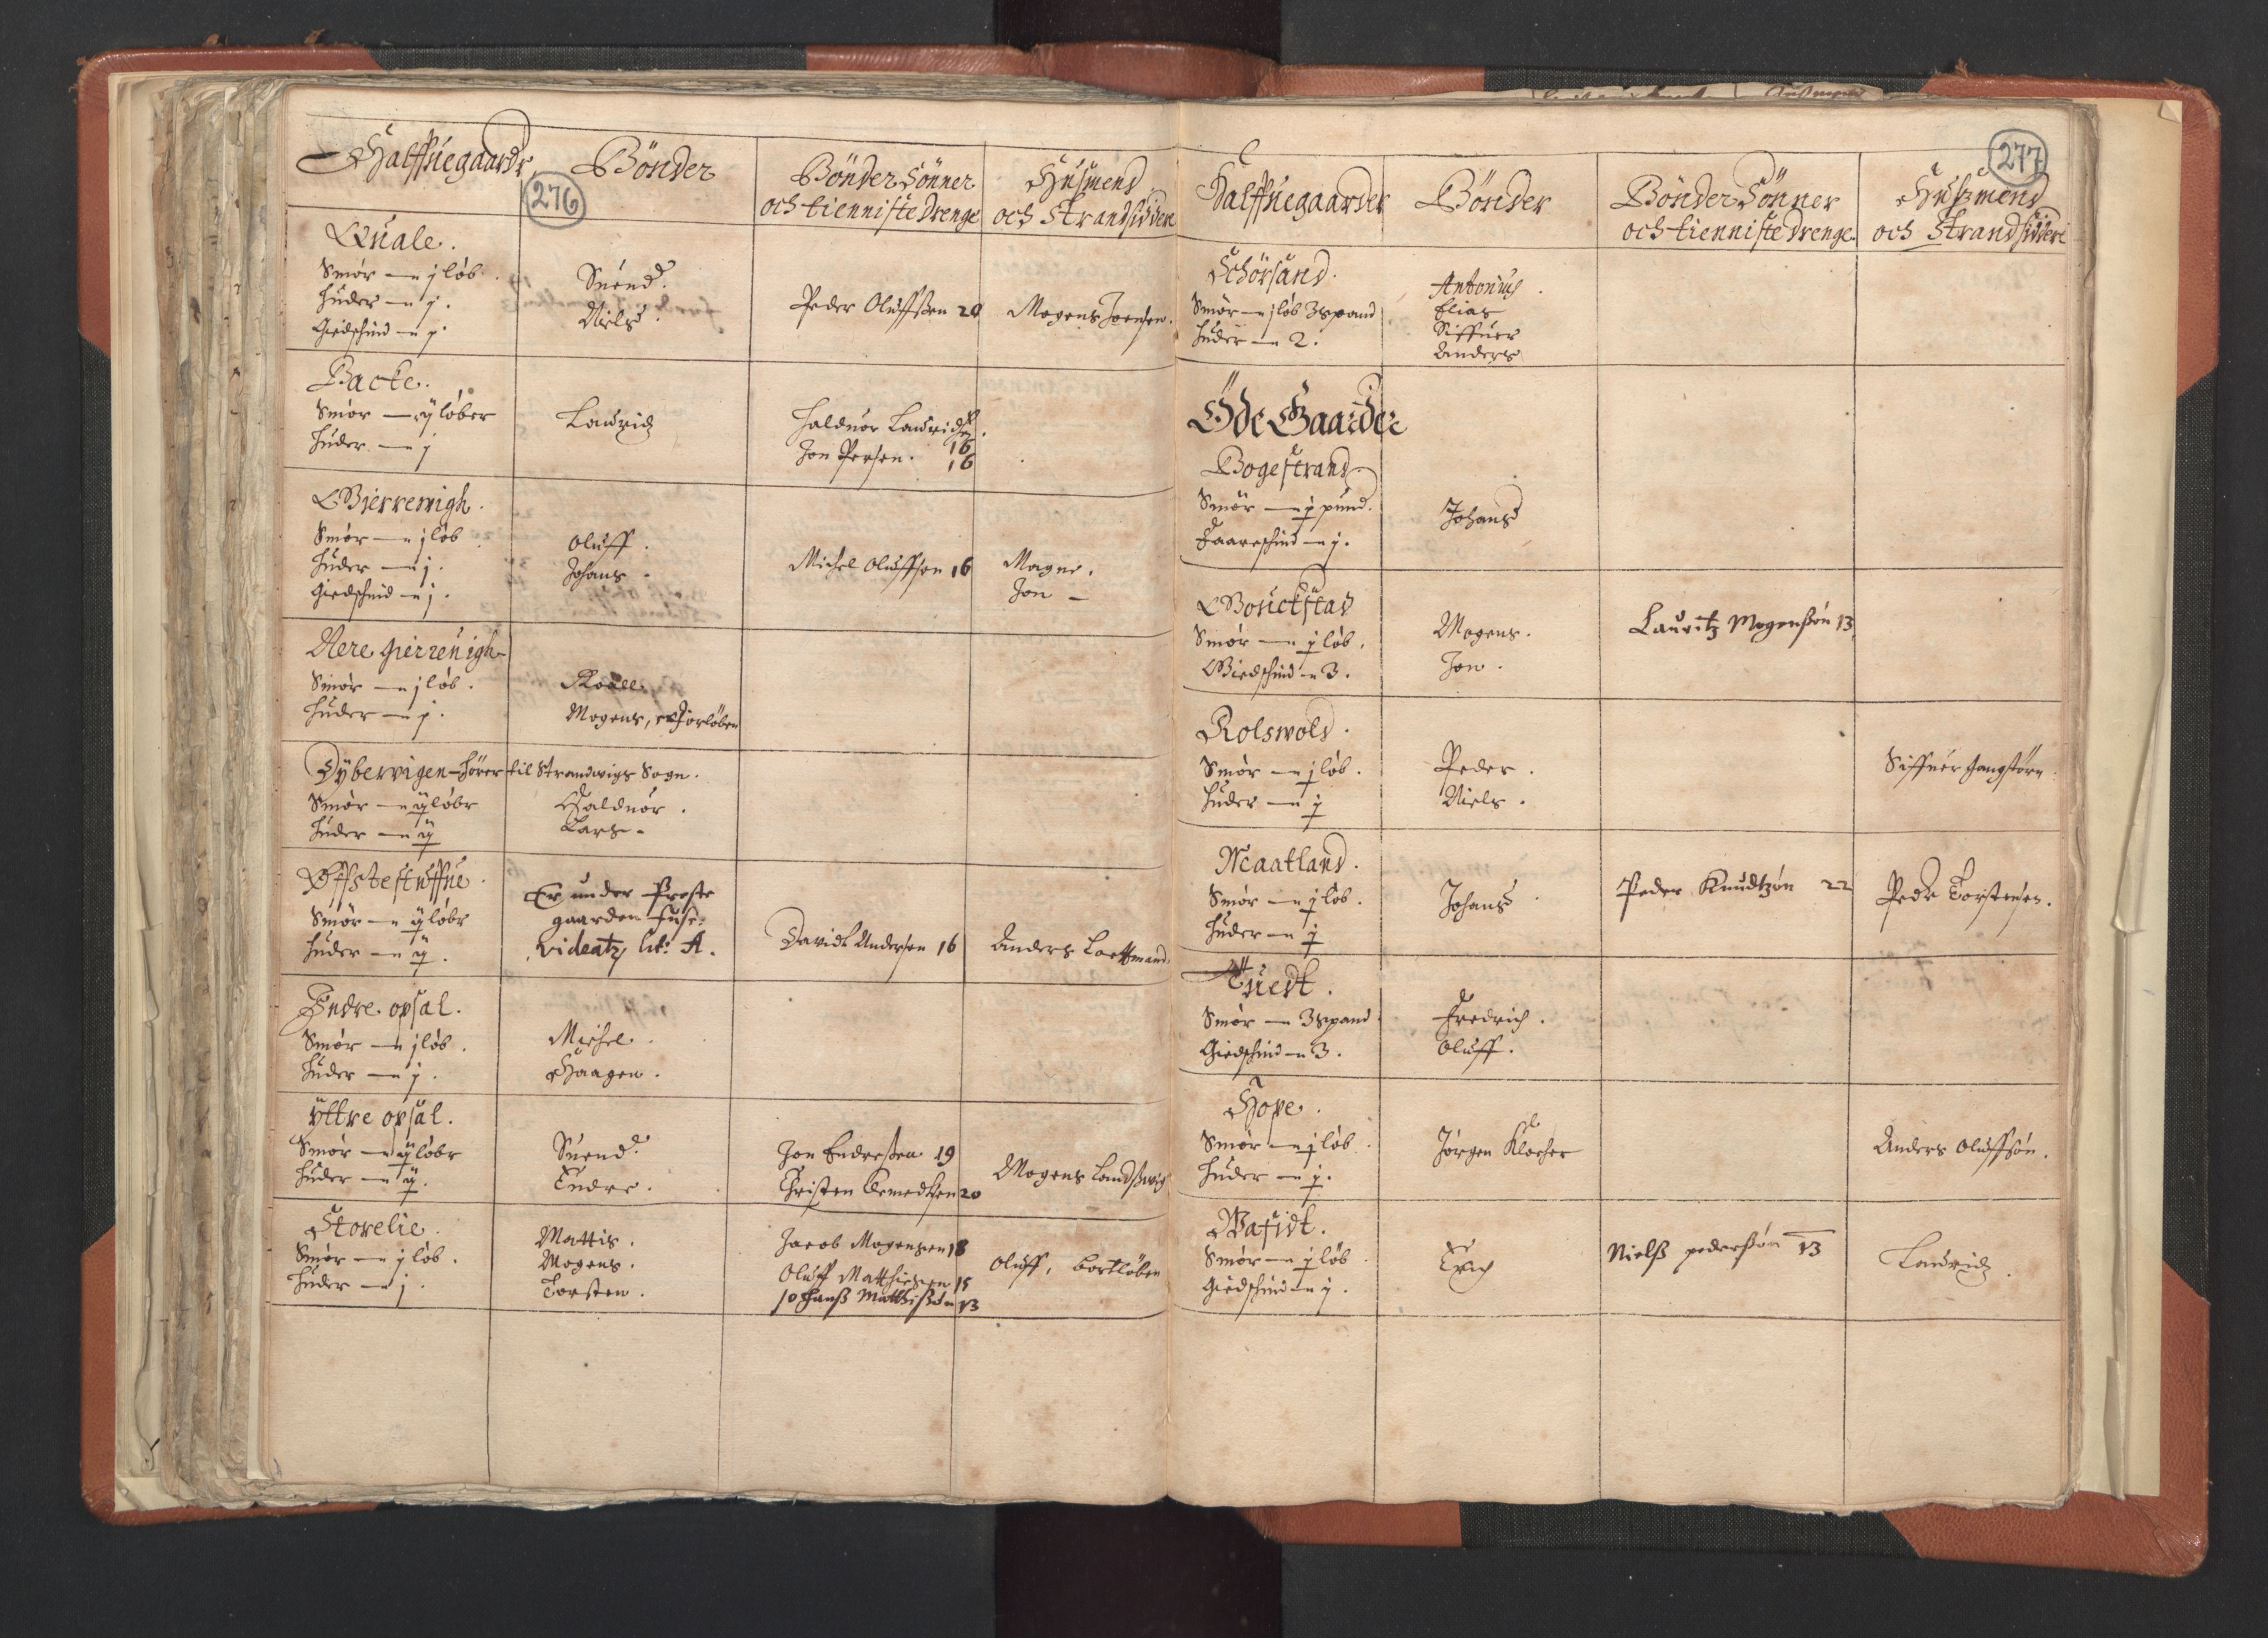 Halffuegaarde
276
Bönder
Bönder Sönner
och tienniste drenge
Husmend
och Strandsiddere
Quale.
Smör — j löb.
Huder — j.
Giedschind — j.
Suend.
Niels.
Peder Oluffsen 20
Mogens Joensen.
Backe.
Smör — ij löber
Huder — j
Lauridz
Halduor Lauridsen
16
Jon Persen. 16
Gierrewigh.
Smör — j löb
Huder — j.
Giedschind — j.
Oluff.
Johans.
Michel Oluffsen 16
Magne.
Jon —
Nere gierreuigh
Smör — j löb.
Huder — j.
Roall.
Mogens, er forlöben
Dyberwigen hörer til Strandwigs Sogn.
Smör — ij löbr
Huder — ij
Halduor.
Lars.
Öffstestuffne.
Smör — ij löbr
Huder — ij.
Er under Preste
gaarden Fuse.
videatz lit: A.
David Andersen 16
Anders Loettmand.
Indre opsal.
Smör — j löb.
Huder — j.
Michel.
Haagen.
Yttre opsal.
Smör — ij löbr
Huder — ij.
Suend.
Endre.
Jon Endresen 19
Christen 20
Mogens Landswig
Storelie.
Smör — j löb.
Huder — j.
Mattis.
Mogens.
Torsten.
Jacob Mogensen 18
Oluff Matthiesen 15
Johanss Matthissön 13
Oluff, bortlöben
277
Halffuegaarder
Bönder
Bönder Sönner
och tienniste drenge
Huszmend
och Strandsiddere
Schörsand.
Smör — j löb 3 spand
Huder — 2.
Antonius.
Elias
Siffuer
Anders
Öde Gaarder
Bogestrand.
Smör — j pund.
Faarschind — j.
Johans
Bouckstad
Smör — j löb.
Giedschind — 3.
Mogens.
Jon.
Lauritz Mogenssön 13
Rolswold.
Smör — j löb.
Huder — j
Peder.
Niels.
Siffuer Gangstörn
Maatland.
Smör — j löb.
Huder — j
Johans.
Peder Knudtzön 22
Pedr Torstensen.
Tuedt.
Smör — 3 spand
Giedschind — 3.
Fredrich.
Oluff.
Hope.
Smör — j löb.
Huder — j.
Jörgen Klocher
Anders Oluffsön.
Smör — j löb
Giedschind — j.
Erich
Nielss pedersön 13
Lauridz.